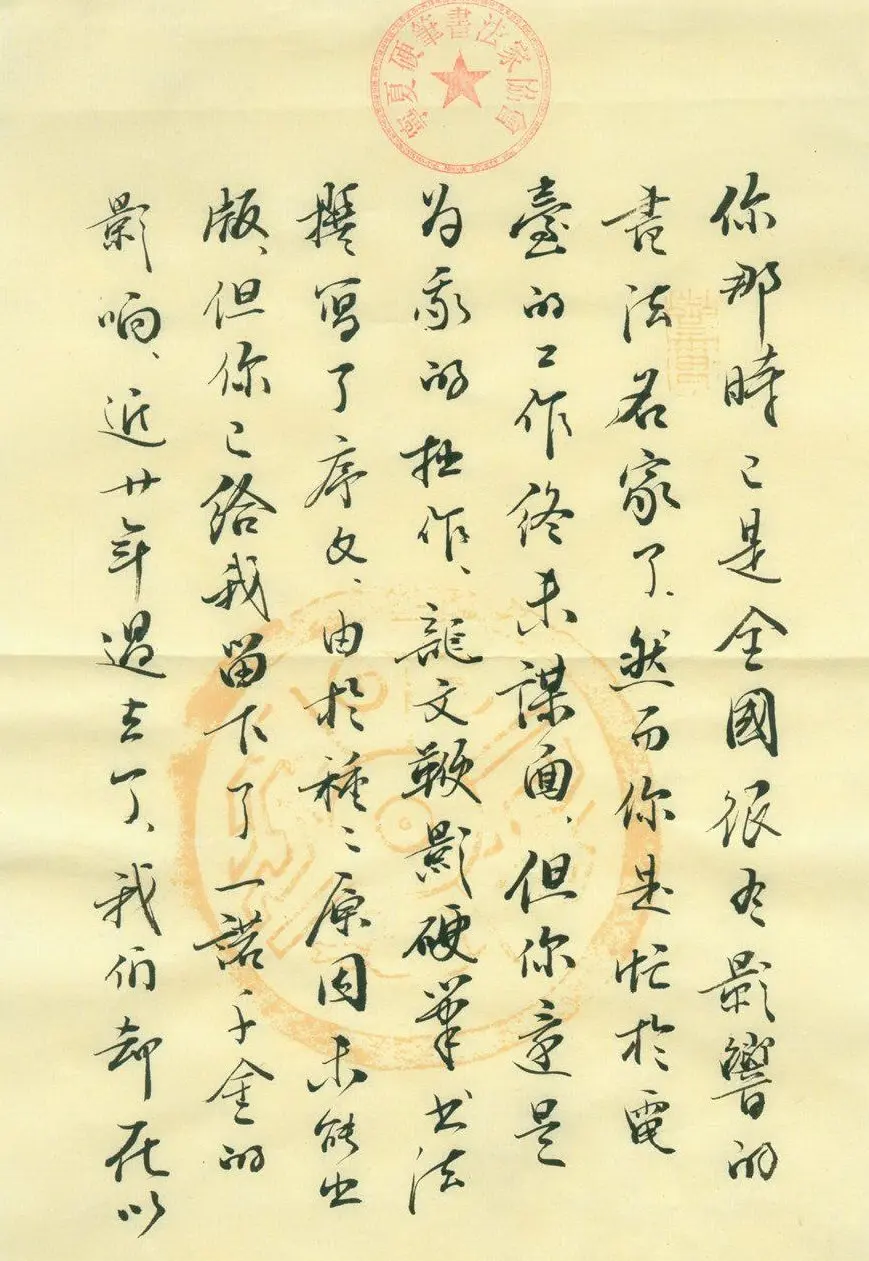 寧夏硬筆書法家協會
你那時已是全國很有影響的
書法名家了、然而你是忙於電
臺的工作終未謀面、但你還是
为我的拙作、龍文鞭影硬筆书法
撰寫了序文、由於種〻原因未能出
版、但你已给我留下了一諾千金的
影响、近廿年過去了、我们却在以